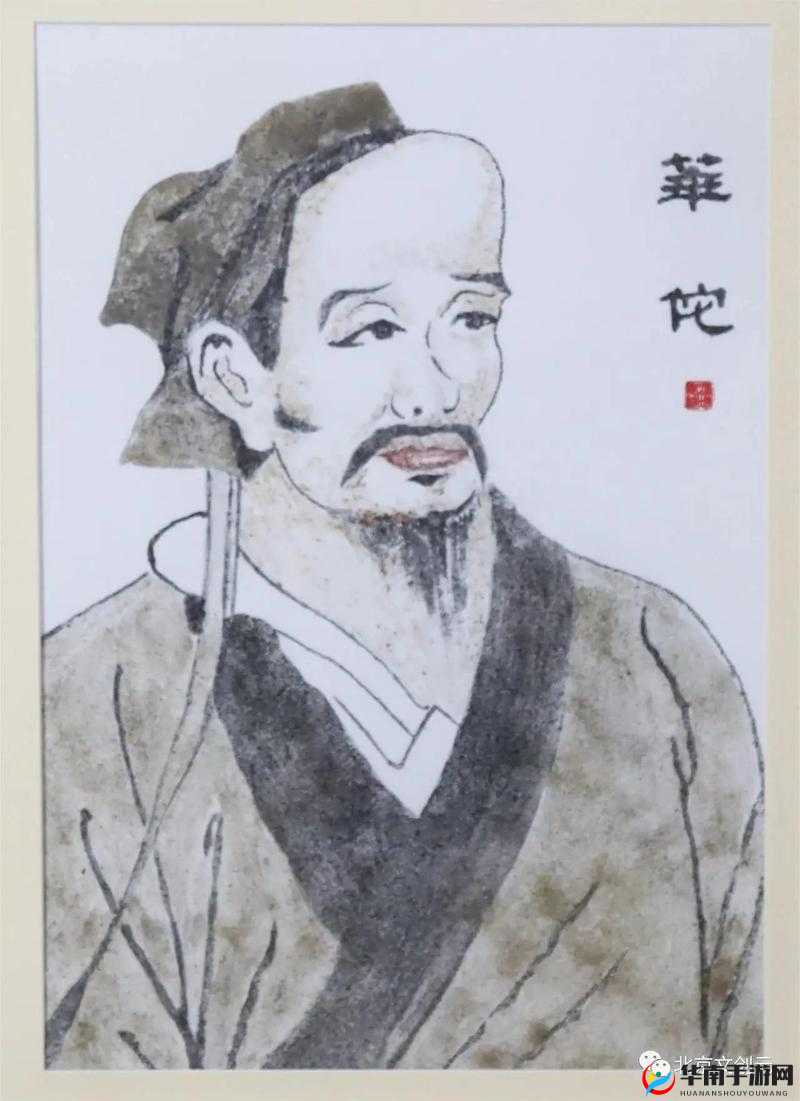 華佗
华南手游网
HUANANSHOUYOUWANG